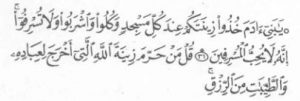 ۞ يَٰبَنِىٓ ءَادَمَ خُذُوا۟ زِينَتَكُمْ عِندَ كُلِّ مَسْجِدٍ وَكُلُوا۟ وَٱشْرَبُوا۟ وَلَا تُسْرِفُوٓا۟ ۚ
إِنَّهُۥ لَا يُحِبُّ ٱلْمُسْرِفِينَ ﴿٣١﴾ قُلْ مَنْ حَرَّمَ زِينَةَ ٱللَّهِ ٱلَّتِىٓ أَخْرَجَ لِعِبَادِهِۦ
وَٱلطَّيِّبَٰتِ مِنَ ٱلرِّزْقِ ۚ